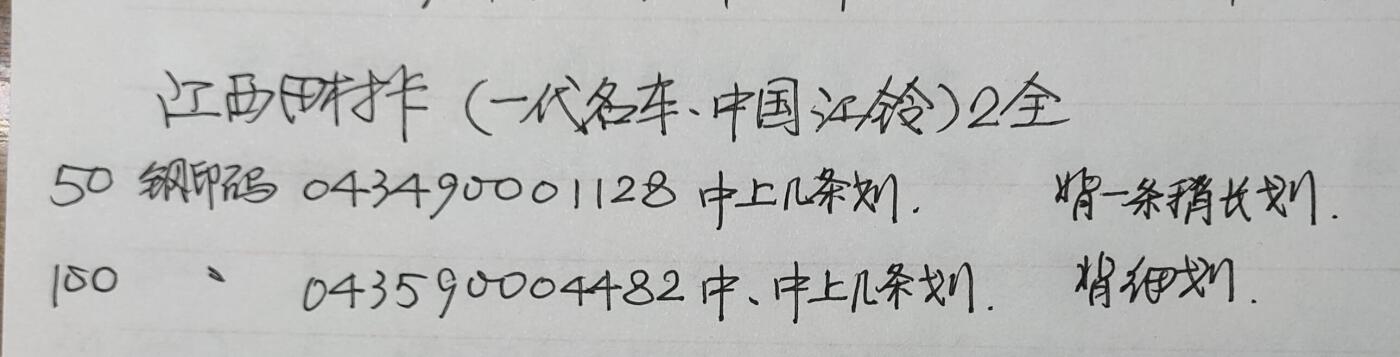 江西田村卡（一代名车、中国江铃）2全
50 钢印码 043490001128 中上几条划. 背一条稍长划.
100 〃 043590004482 中、中上几条划. 背细划.